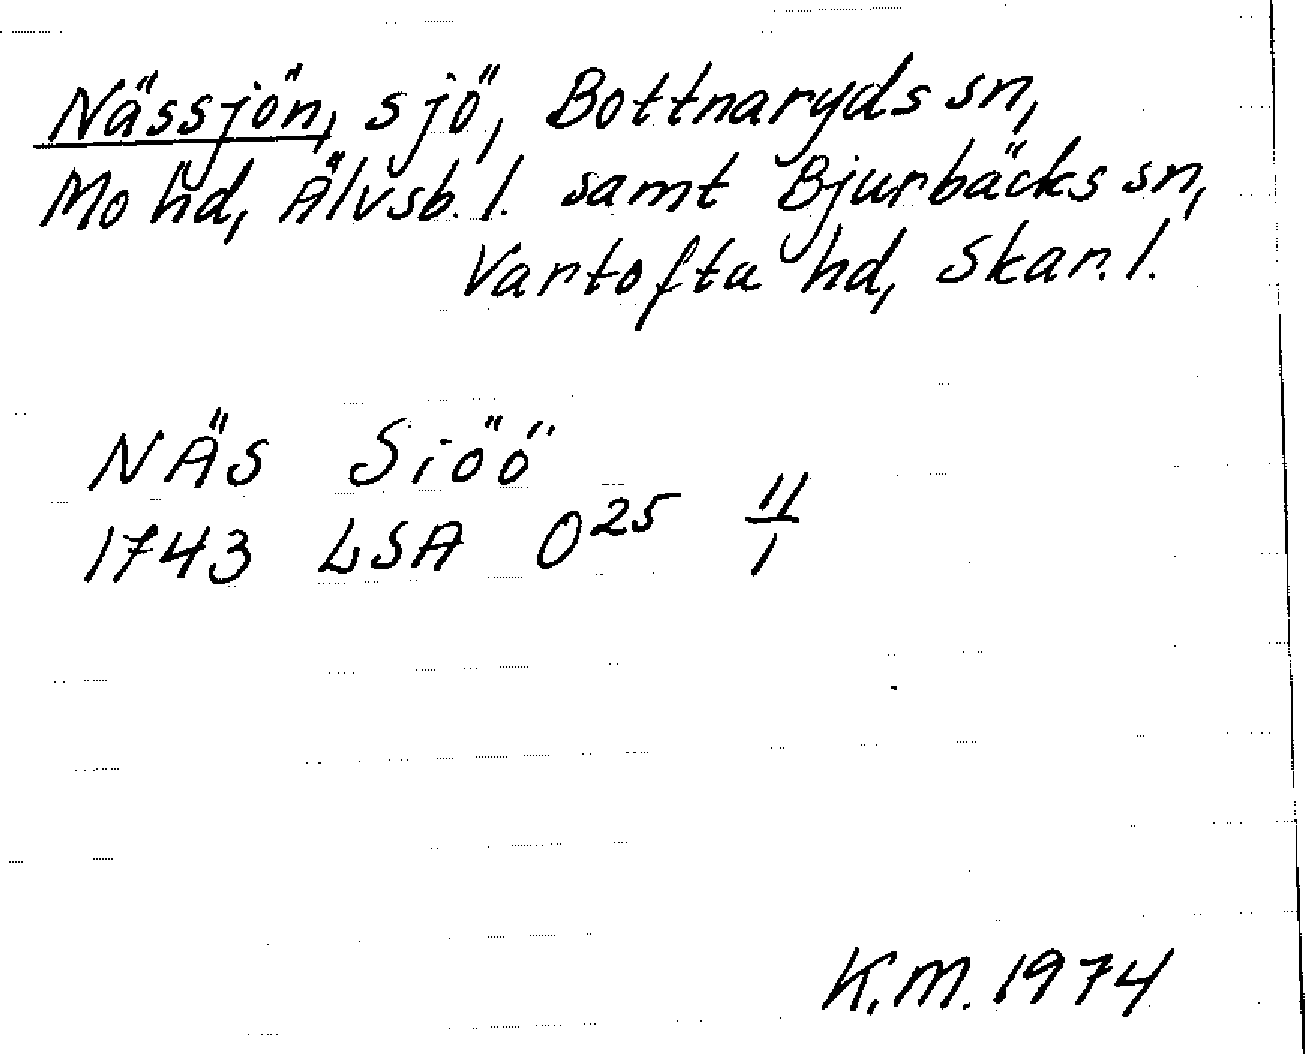 Nässjön, sjö, Bottnaryds sn,
Mo hd, Älvsb. l. samt Bjurbäcks sn,
Vartofta hd, Skar. l.
NÄS Siöö
1743 LSA O25 11/1
K.M. 1974